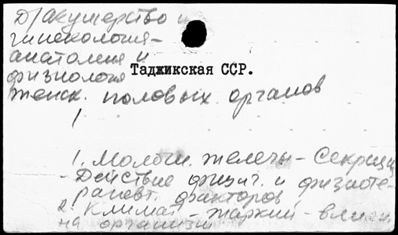 D/ акушерство и
гинекология-
анатомия и
физиология
Таджикская ССР.
женск. половых органов
1
1. Молочн. железы - Секреция
- Действие физич. и физиоте-
рапевт. факторов
2. Климат - жаркий - влиян.
на организм